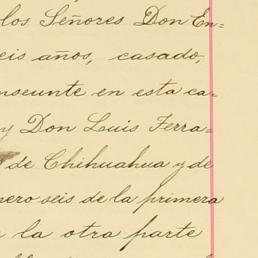 los Señores Don En=
eis años, casado,
nseunte en esta ca-
y Don Luis Terra-
de Chihuahua y de
nero seis de la primera
la otra parte